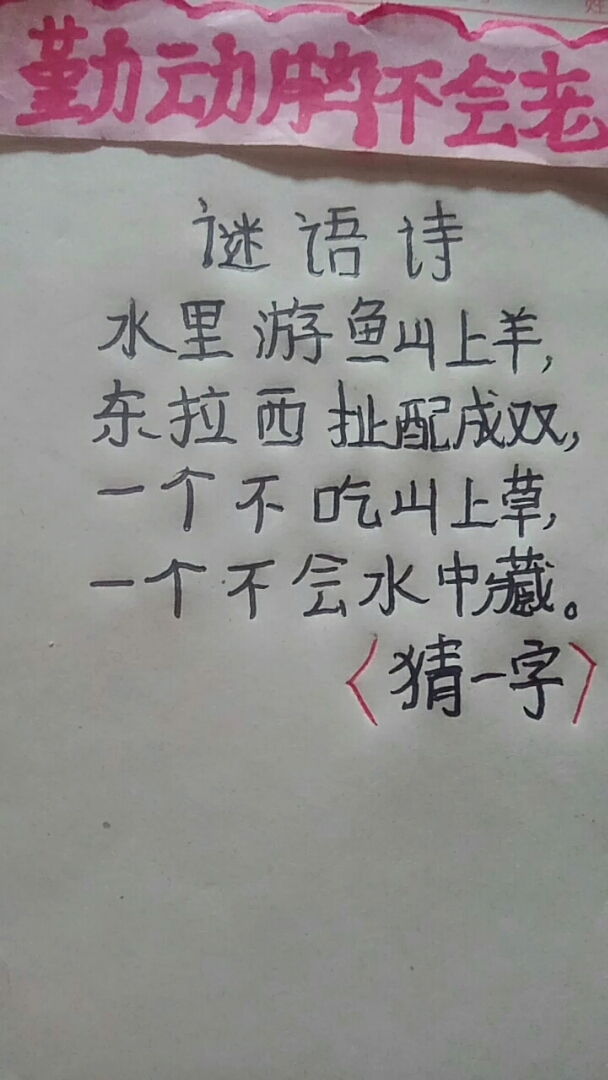 勤动脑不会老
谜语诗
水里游鱼山上羊,
东拉西扯配成双,
一个不吃山上草,
一个不会水中藏。
〈猜一字〉